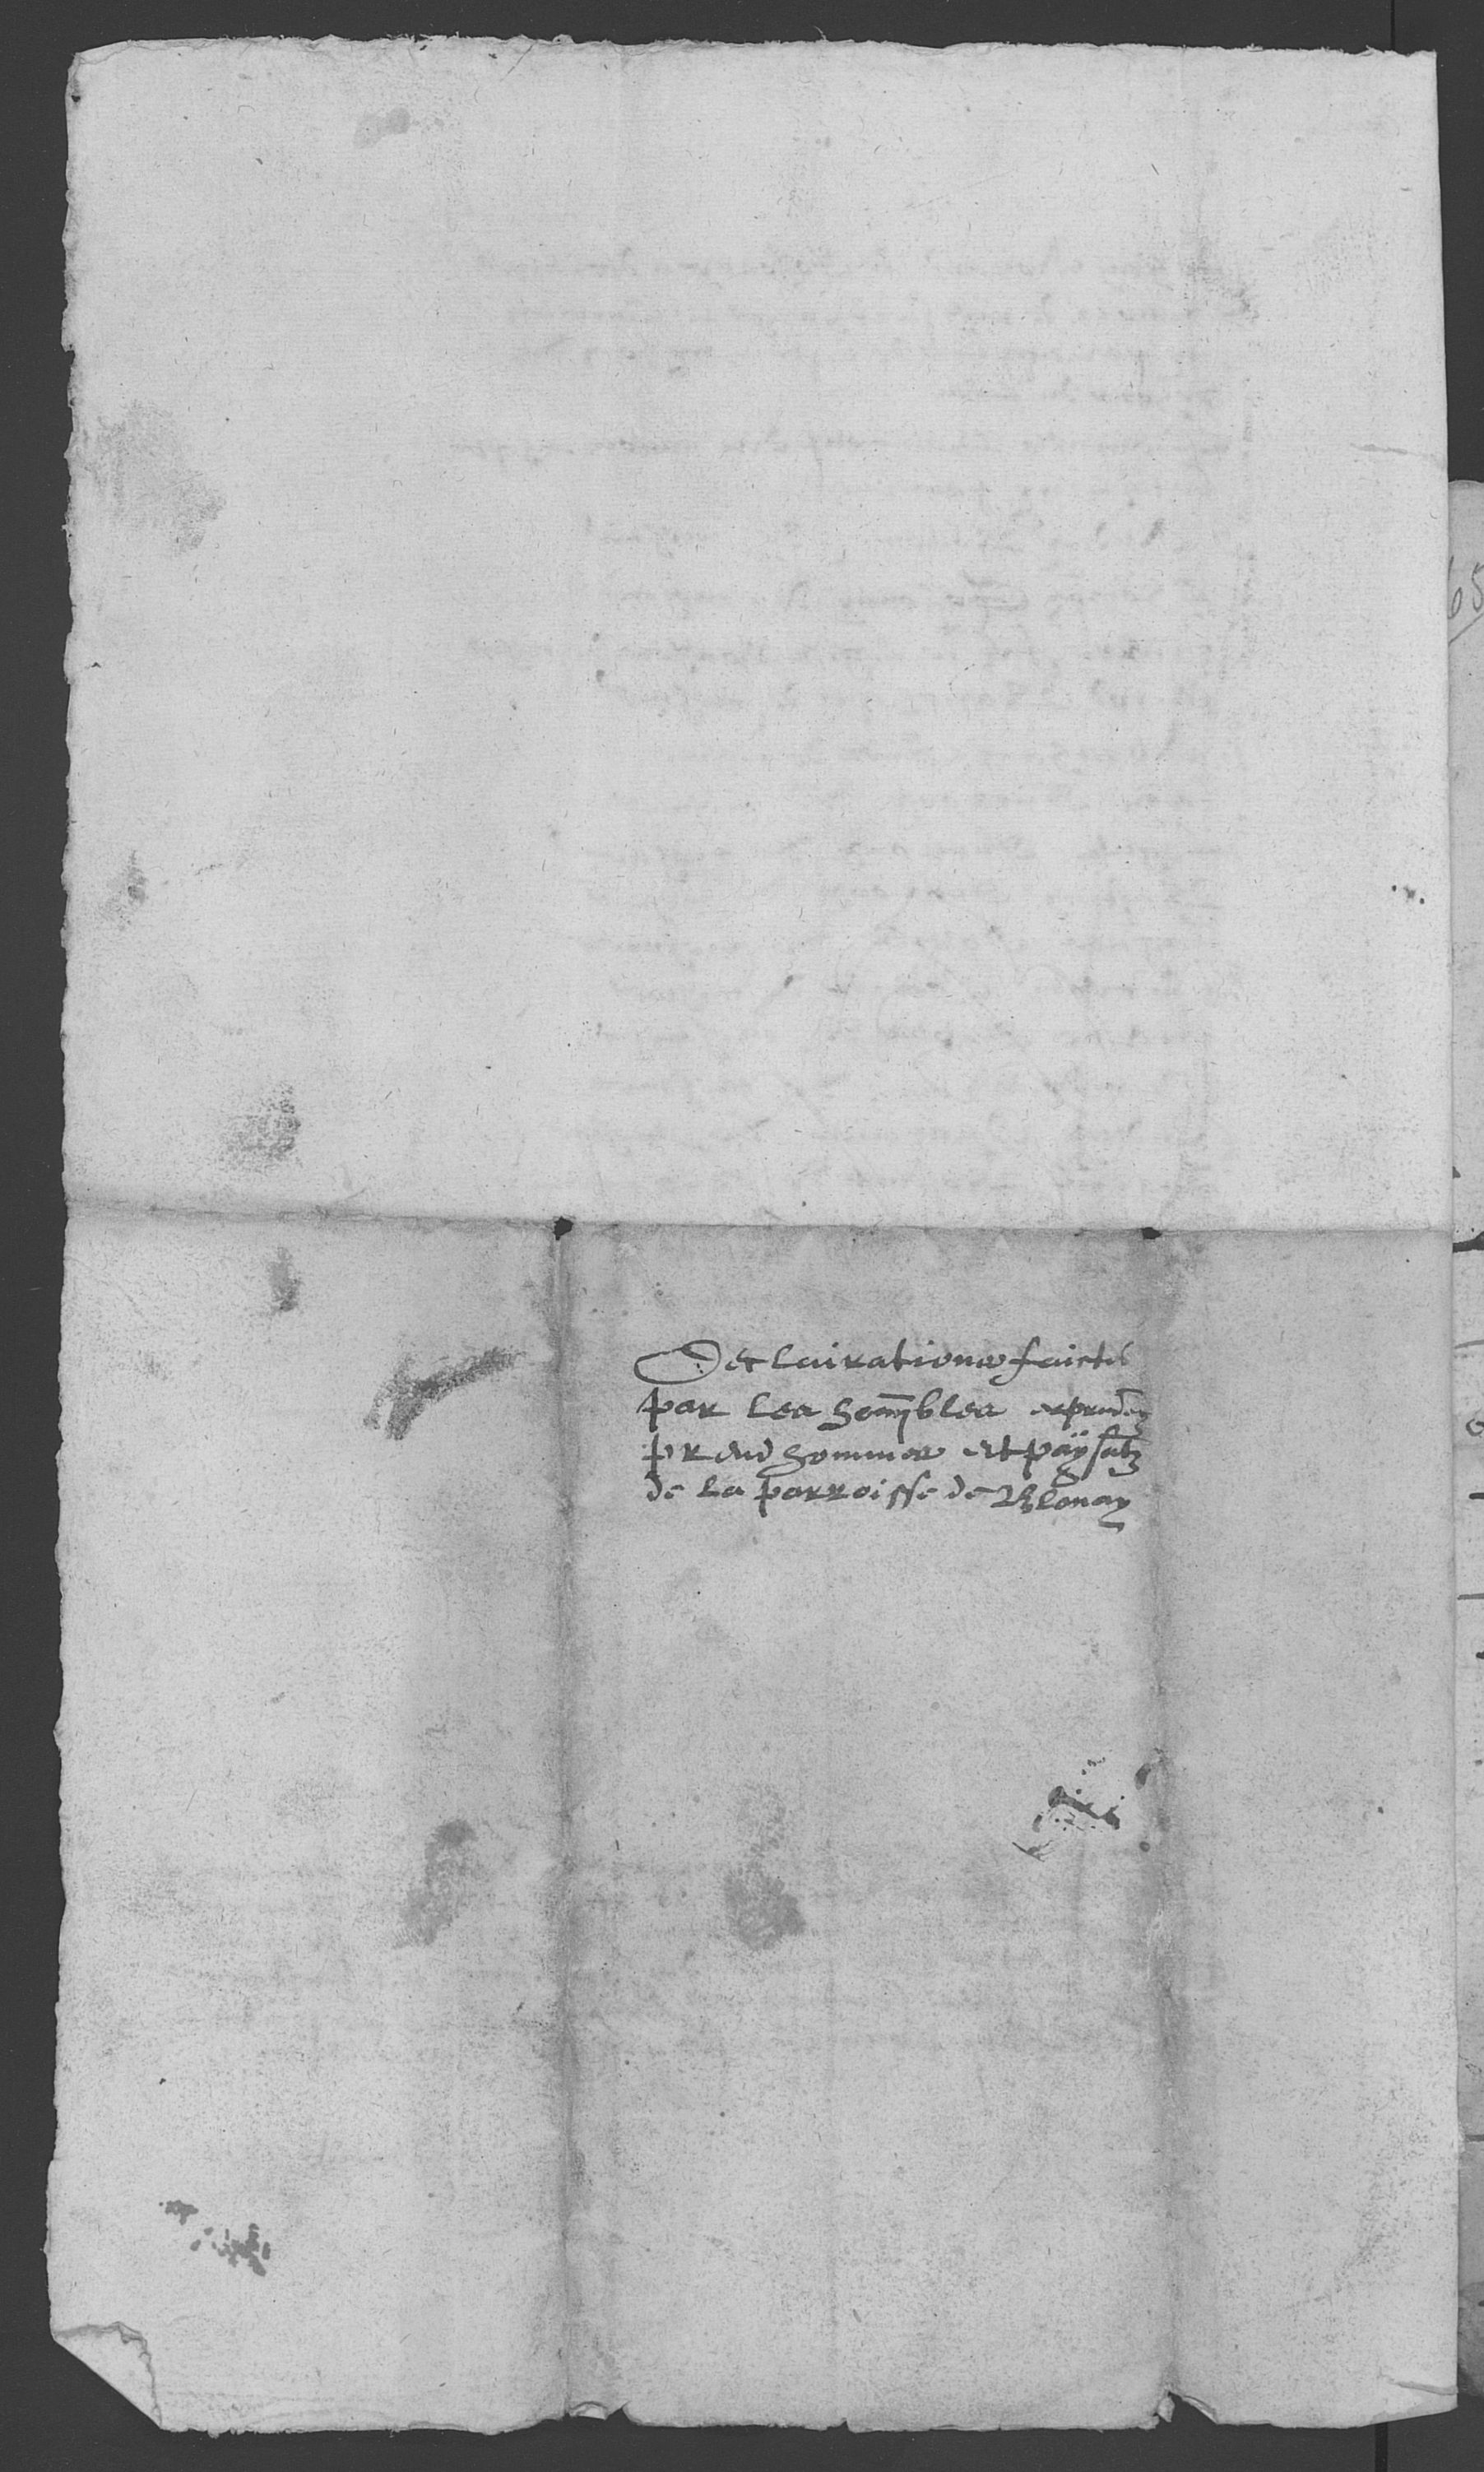 Declairations faictes
par les honnbles et prudez
preudhommes et paÿsatz
de la parroisse de Blonay
65